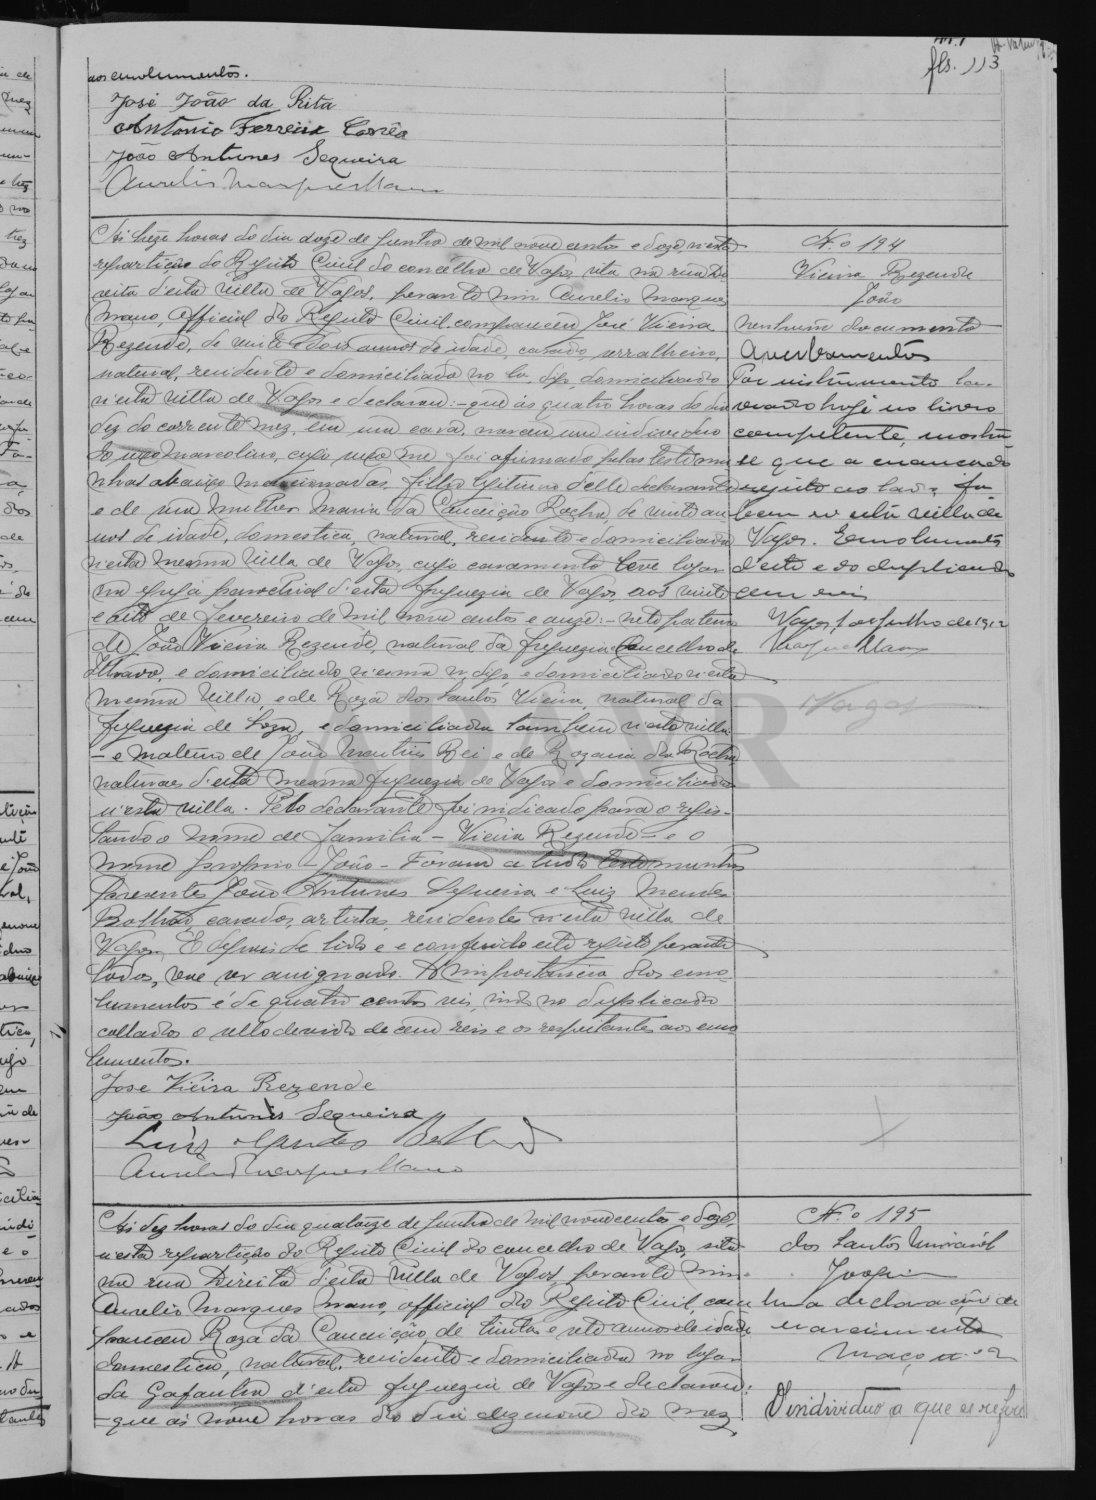 fls. 113
aos emolumentos.
José João da Rita
Antonio Ferreira Corrêa
João Antunes Sequeira
Aurelio Marques Mano
Ás treze horas do dia doze de Junho de mil nove centos e doze, n'esta
repartição do Registo Civil do concelho de Vagos, sita na rua Di
reita d'esta villa de Vagos, perante mim Aurelio Marques
Mano, Official do Registo Civil, compareceu José Vieira
Rezende, de vinte e dois annos de idade, casado, serralheiro,
natural, residente e domiciliado no lo digo domiciliado
n'esta villa de Vagos e declarou: - que ás quatro horas do dia
dez do corrente mez, em sua casa, nasceu um individuo
do sexo masculino, cujo sexo me foi afirmado pelas testemu
nhas abaixo mencionadas, filho legitimo delle declarante
e de sua mulher Maria da Conceição Rocha, de vinte an
nos de idade, domestica, natural, residente e domiciliada
n'esta mesma villa de Vagos, cujo casamento teve logar
na egreja parochial d'esta freguezia de Vagos, aos vinte
e oito de Fevereiro de mil nove centos e onze: - neto paterno
de João Vieira Rezende, natural da freguezia e Concelho de
Ilhavo, e domiciliado n'esma n digo e domiciliado n'esta
mesma villa, e de Roza dos Santos Vieira, natural da
freguezia de Soza, e domiciliada tambem n'esta villa
- e materno de João Martins Rei e de Rozaria da Rocha
naturaes d'esta mesma freguezia de Vagos e domiciliados
n'esta villa. Pelo declarante foi indicado para o regis-
tando o nome de familia - Vieira Rezende - e o
nome proprio - João - Foram a tudo testemunhas
presentes João Antunes Sequeira e Luiz Mendes
Bolhão, casados, artistas, residentes n'esta villa de
Vagos. E depois de lido e e conferido este registo perante
todos, vae ser assignado. A importancia dos emo-
lumentos é de quatro centos reis, indo no duplicado
collados o sello devido de cem reis e os respeitantes aos emo
lumentos.
José Vieira Rezende
João Antunes Sequeira
Luiz Mendes Bolhão
Aurelio Marques Mano
N.º 194
Vieira Rezende
João
nenhum documento
Averbamentos
Por instrumento la-
vrado hoje no livro
competente, mostra
se que a creança do
registo ao lado, fa
leceu n'esta villa de
Vagos. Emolumentos
d'este e do duplicado
cem reis
Vagos, 1 de julho de 1912
Marques Mano
Vagos
Ás dez horas do dia quatorze de Junho de mil novecentos e doze,
n'esta repartição do Registo Civil do concelho de Vagos, sita
na rua Direita d'esta villa de Vagos, perante mim
Aurelio Marques Mano, official do Registo Civil, com
pareceu Roza da Conceição, de trinta e sete annos de idade
domestica, natural, residente e domiciliada no logar
da Gafanha d'esta freguezia de Vagos e declarou:
- que ás nove horas do dia dezenove do mez
N.º 195
dos Santos
Joaquim
Uma declaração de
nascimento
O individuo a que se refere